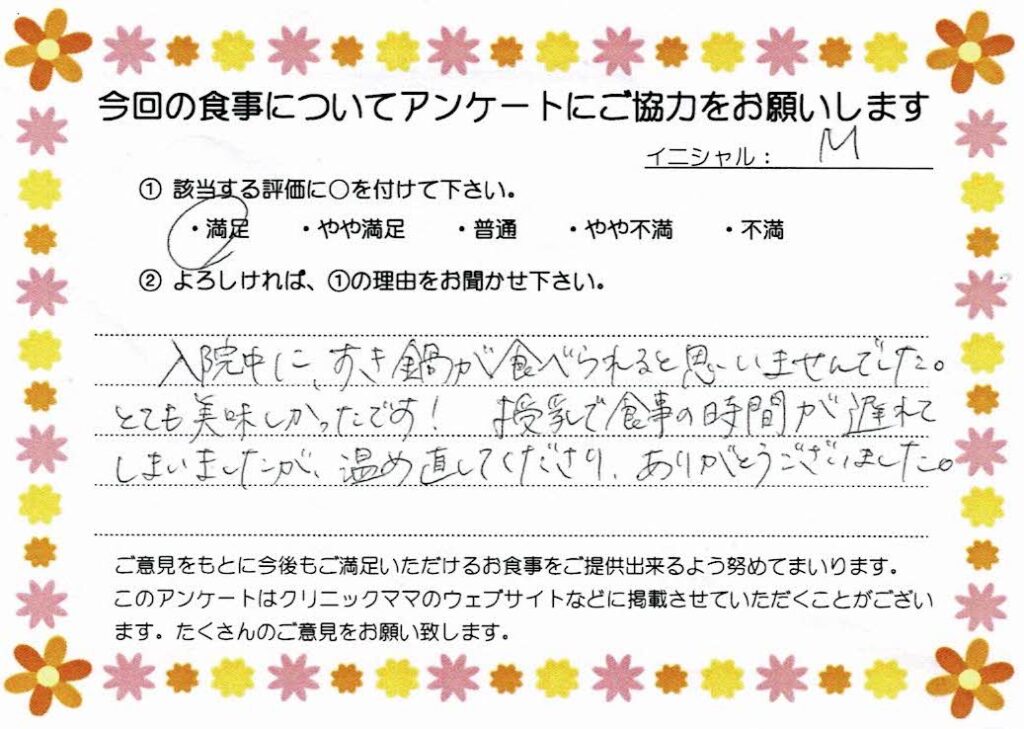 今回の食事についてアンケートにご協力をお願いします
イニシャル： M
① 該当する評価に○を付けて下さい。
・満足 ・やや満足 ・普通 ・やや不満 ・不満
② よろしければ、①の理由をお聞かせ下さい。
入院中に、すき鍋が食べられると思いませんでした。
とても美味しかったです！ 授乳で食事の時間が遅れて
しまいましたが、温め直してくださり、ありがとうございました。
ご意見をもとに今後もご満足いただけるお食事をご提供出来るよう努めてまいります。
このアンケートはクリニックママのウェブサイトなどに掲載させていただくことがござい
ます。たくさんのご意見をお願い致します。